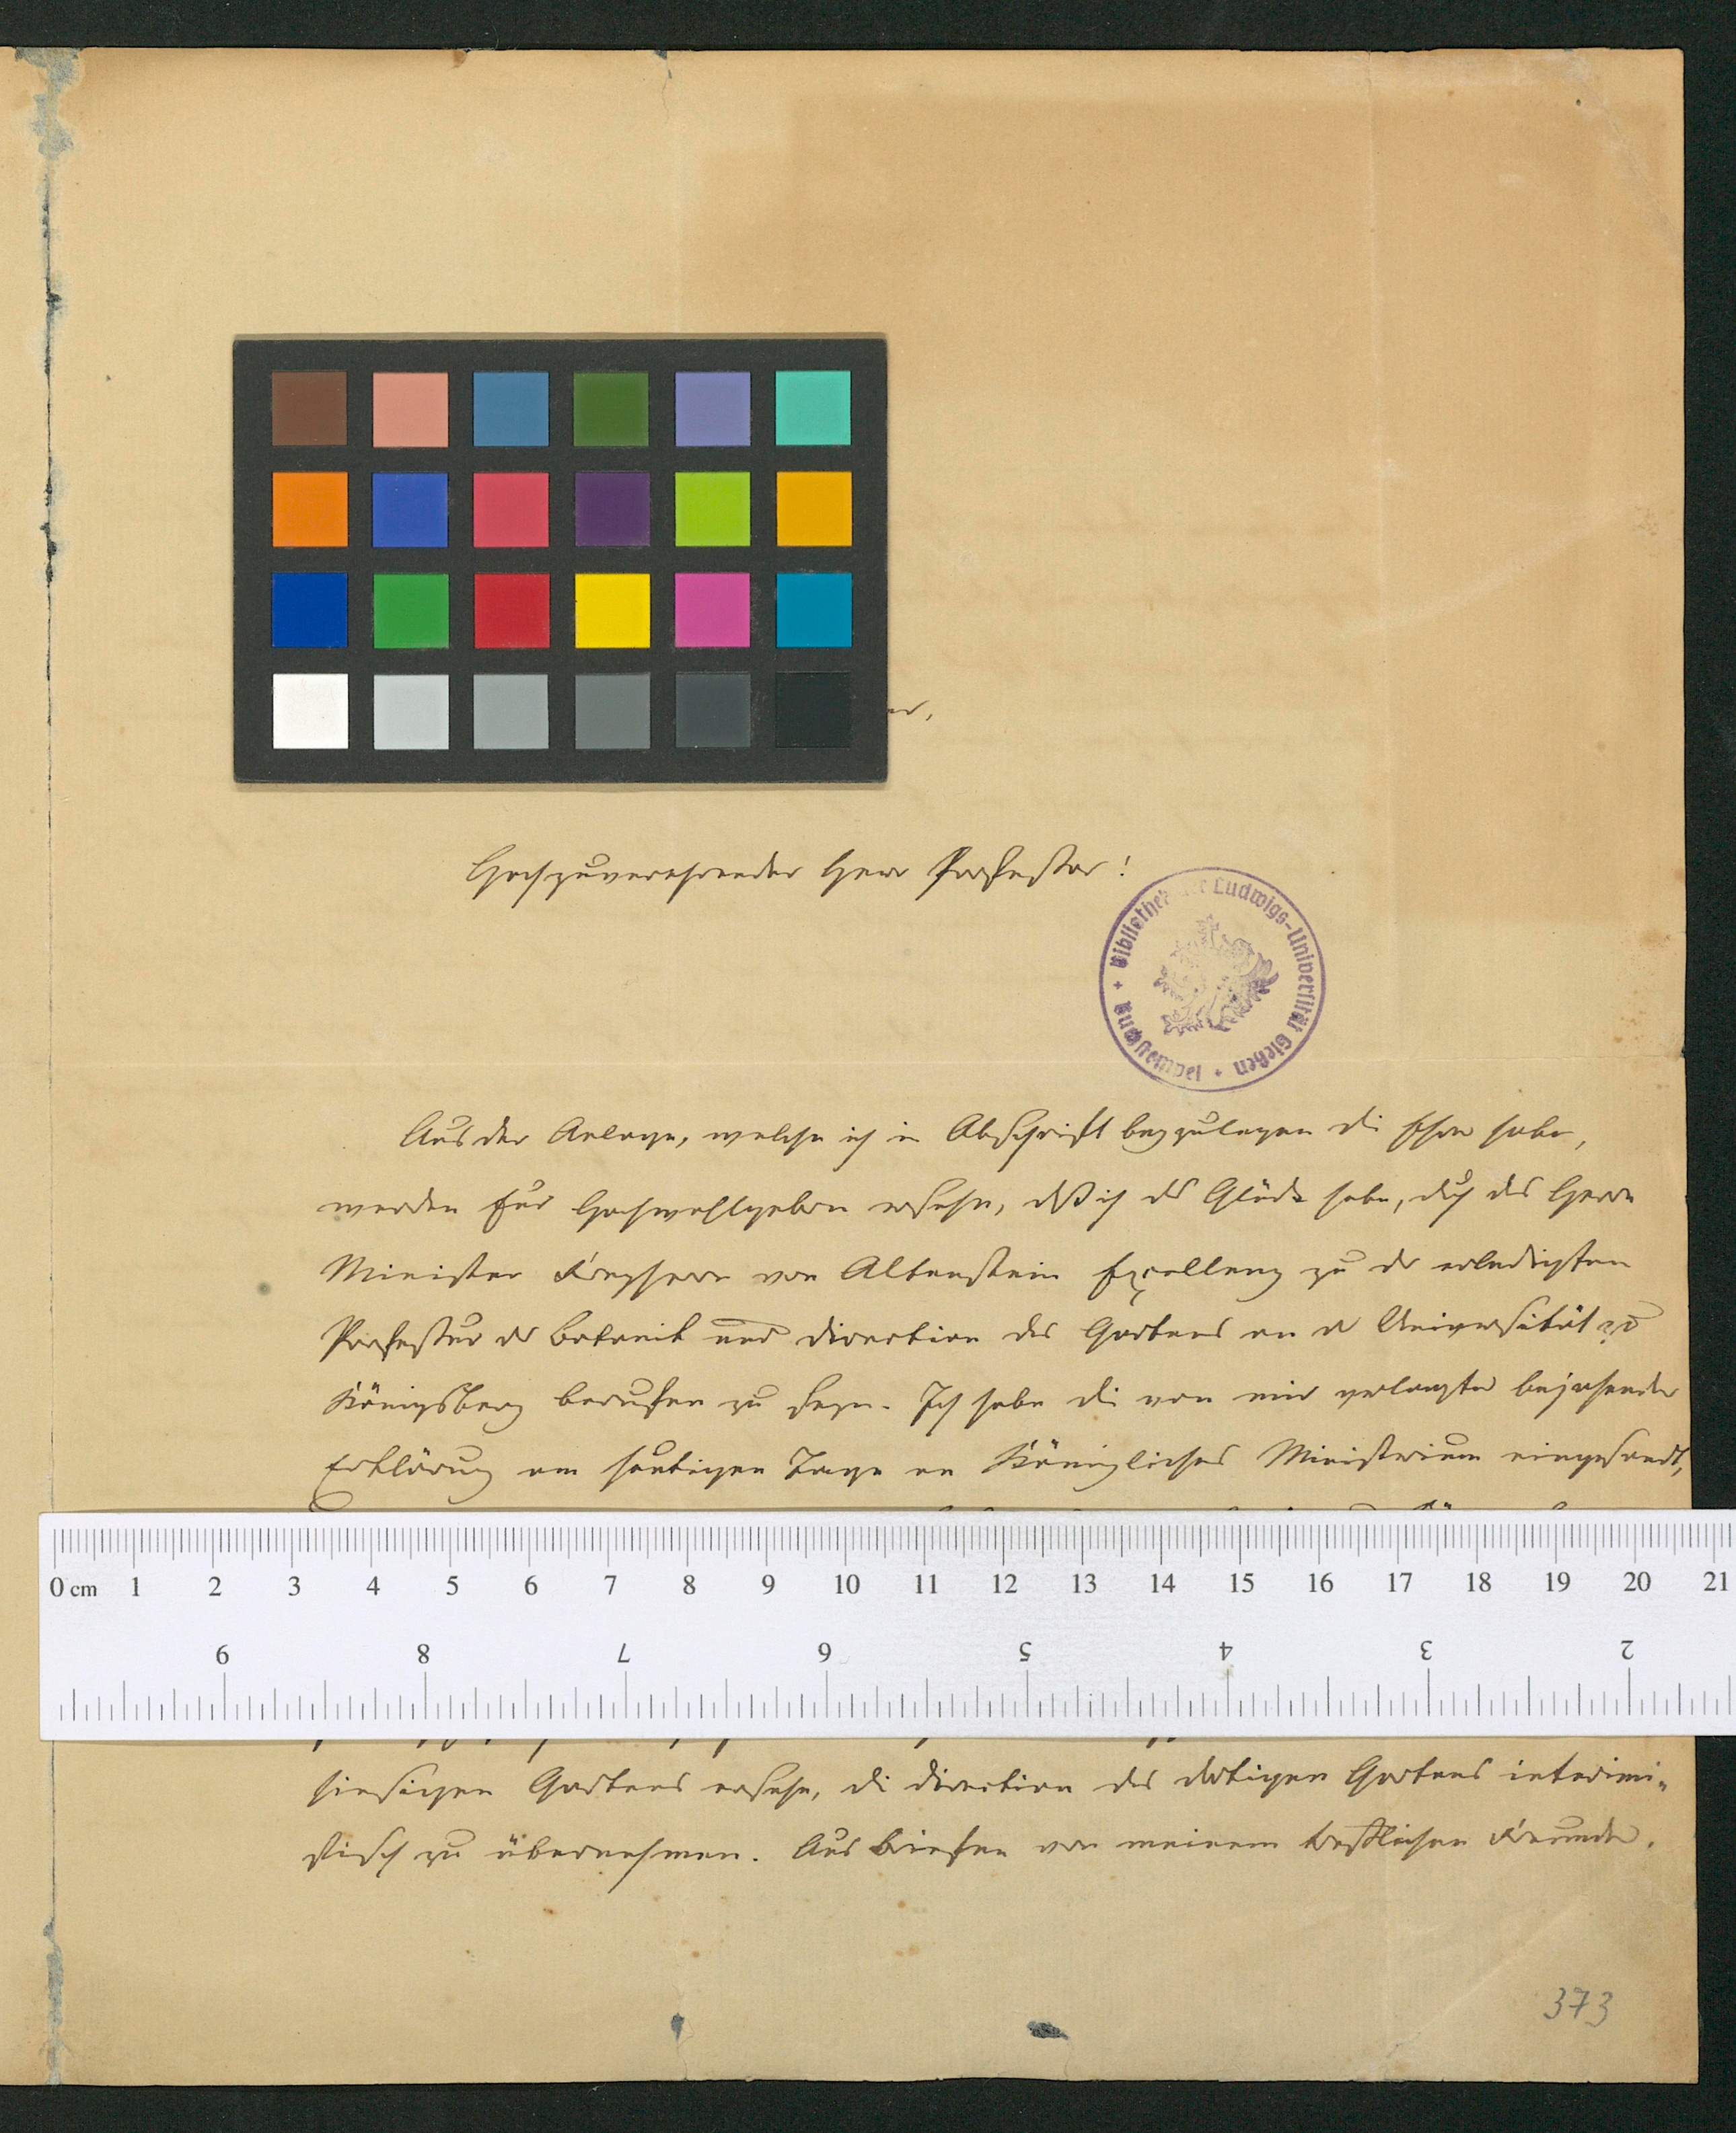 Hochzuverehrender Herr Professor!
Bibliothek der Ludwigs-Universität Gießen
Aus der Anlage, welche ich in Abschrift beyzulegen die Ehre habe,
werden Eur Hochwohlgeborn ersehn, daß ich das Glück habe, durch des Herrn
Minister Freyherrn von Altenstein Excellenz zu der erledigten
Professur der Botanik und Direction des Gartens an der Universität zu
Königsberg berufen zu seyn. Ich habe die von mir verlangte bejahende
Erklärung am heutigen Tage an Königliches Ministerium eingesandt,
0 cm 1 2 3 4 5 6 7 8 9 10 11 12 13 14 15 16 17 18 19 20 21
9 8 7 6 5 4 3 2
hiesigen Gartens ersehe, die Direction des dortigen Gartens interimi-
stisch zu übernehmen. Aus Briefen von meinem trefflichen Freunde.
373